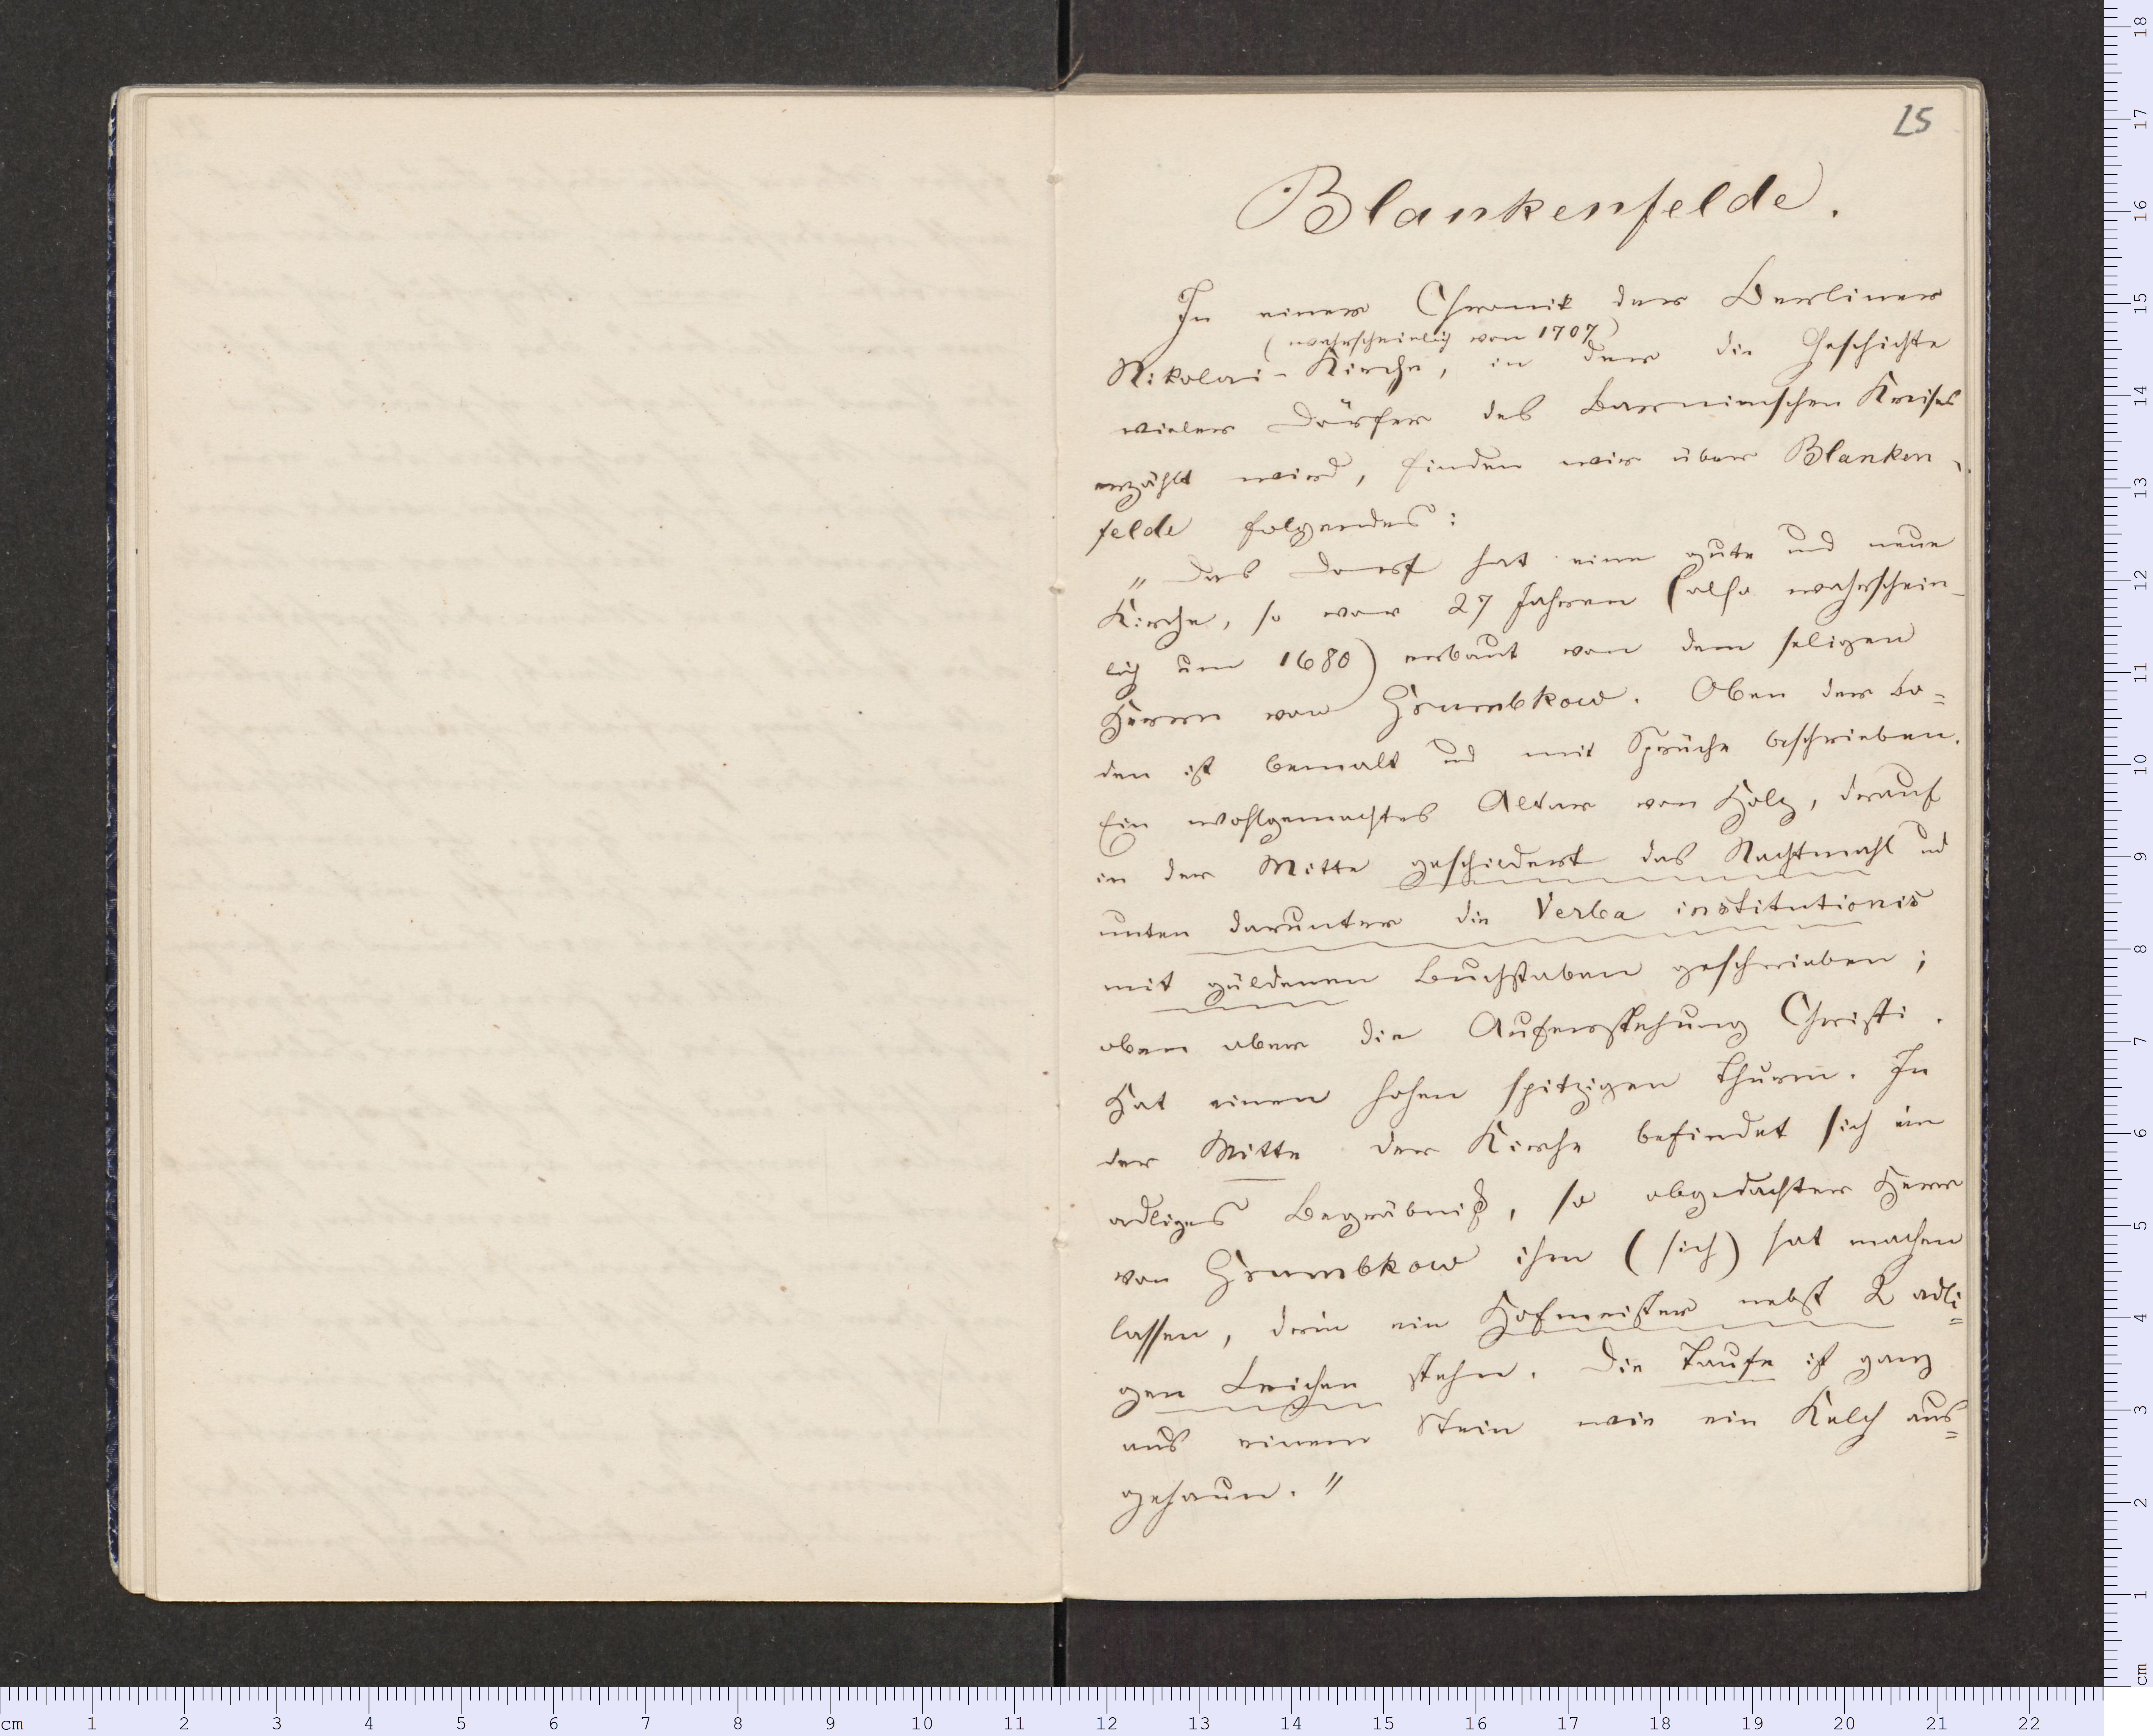 25
Blankenfelde.
In einer Chronik der Berliner
(wahrscheinlich von 1707)
Nikolai-Kirche, in der die Geschichte
vieler Dörfer des Barnimschen Kreises
erzählt wird, finden wir über Blanken-
felde folgendes:
„Das Dorf hat eine gute und neue
Kirche, so vor 27 Jahren (also wahrschein-
lich um 1680) erbaut von dem seligen
Herrn von Grumbkow. Oben der Bo=
den ist bemalt und mit Sprüche beschrieben.
Ein wohlgemachtes Altar von Holz, drauf
in der Mitte geschildert das Nachtmahl und
unten darunter die Verba institutionis
mit güldenen Buchstaben geschrieben;
oben aber die Auferstehung Christi.
Hat einen hohen spitzigen Thurm. In
der Mitte der Kirche befindet sich ein
adliges Begräbniß, so obgedachter Herr
von Grumbkow ihm (sich) hat machen
lassen, drin ein Hofmeister nebst 2 adli=
gen Leichen stehn. Die Taufe ist ganz
aus einem Stein wie ein Kelch aus=
gehaun."